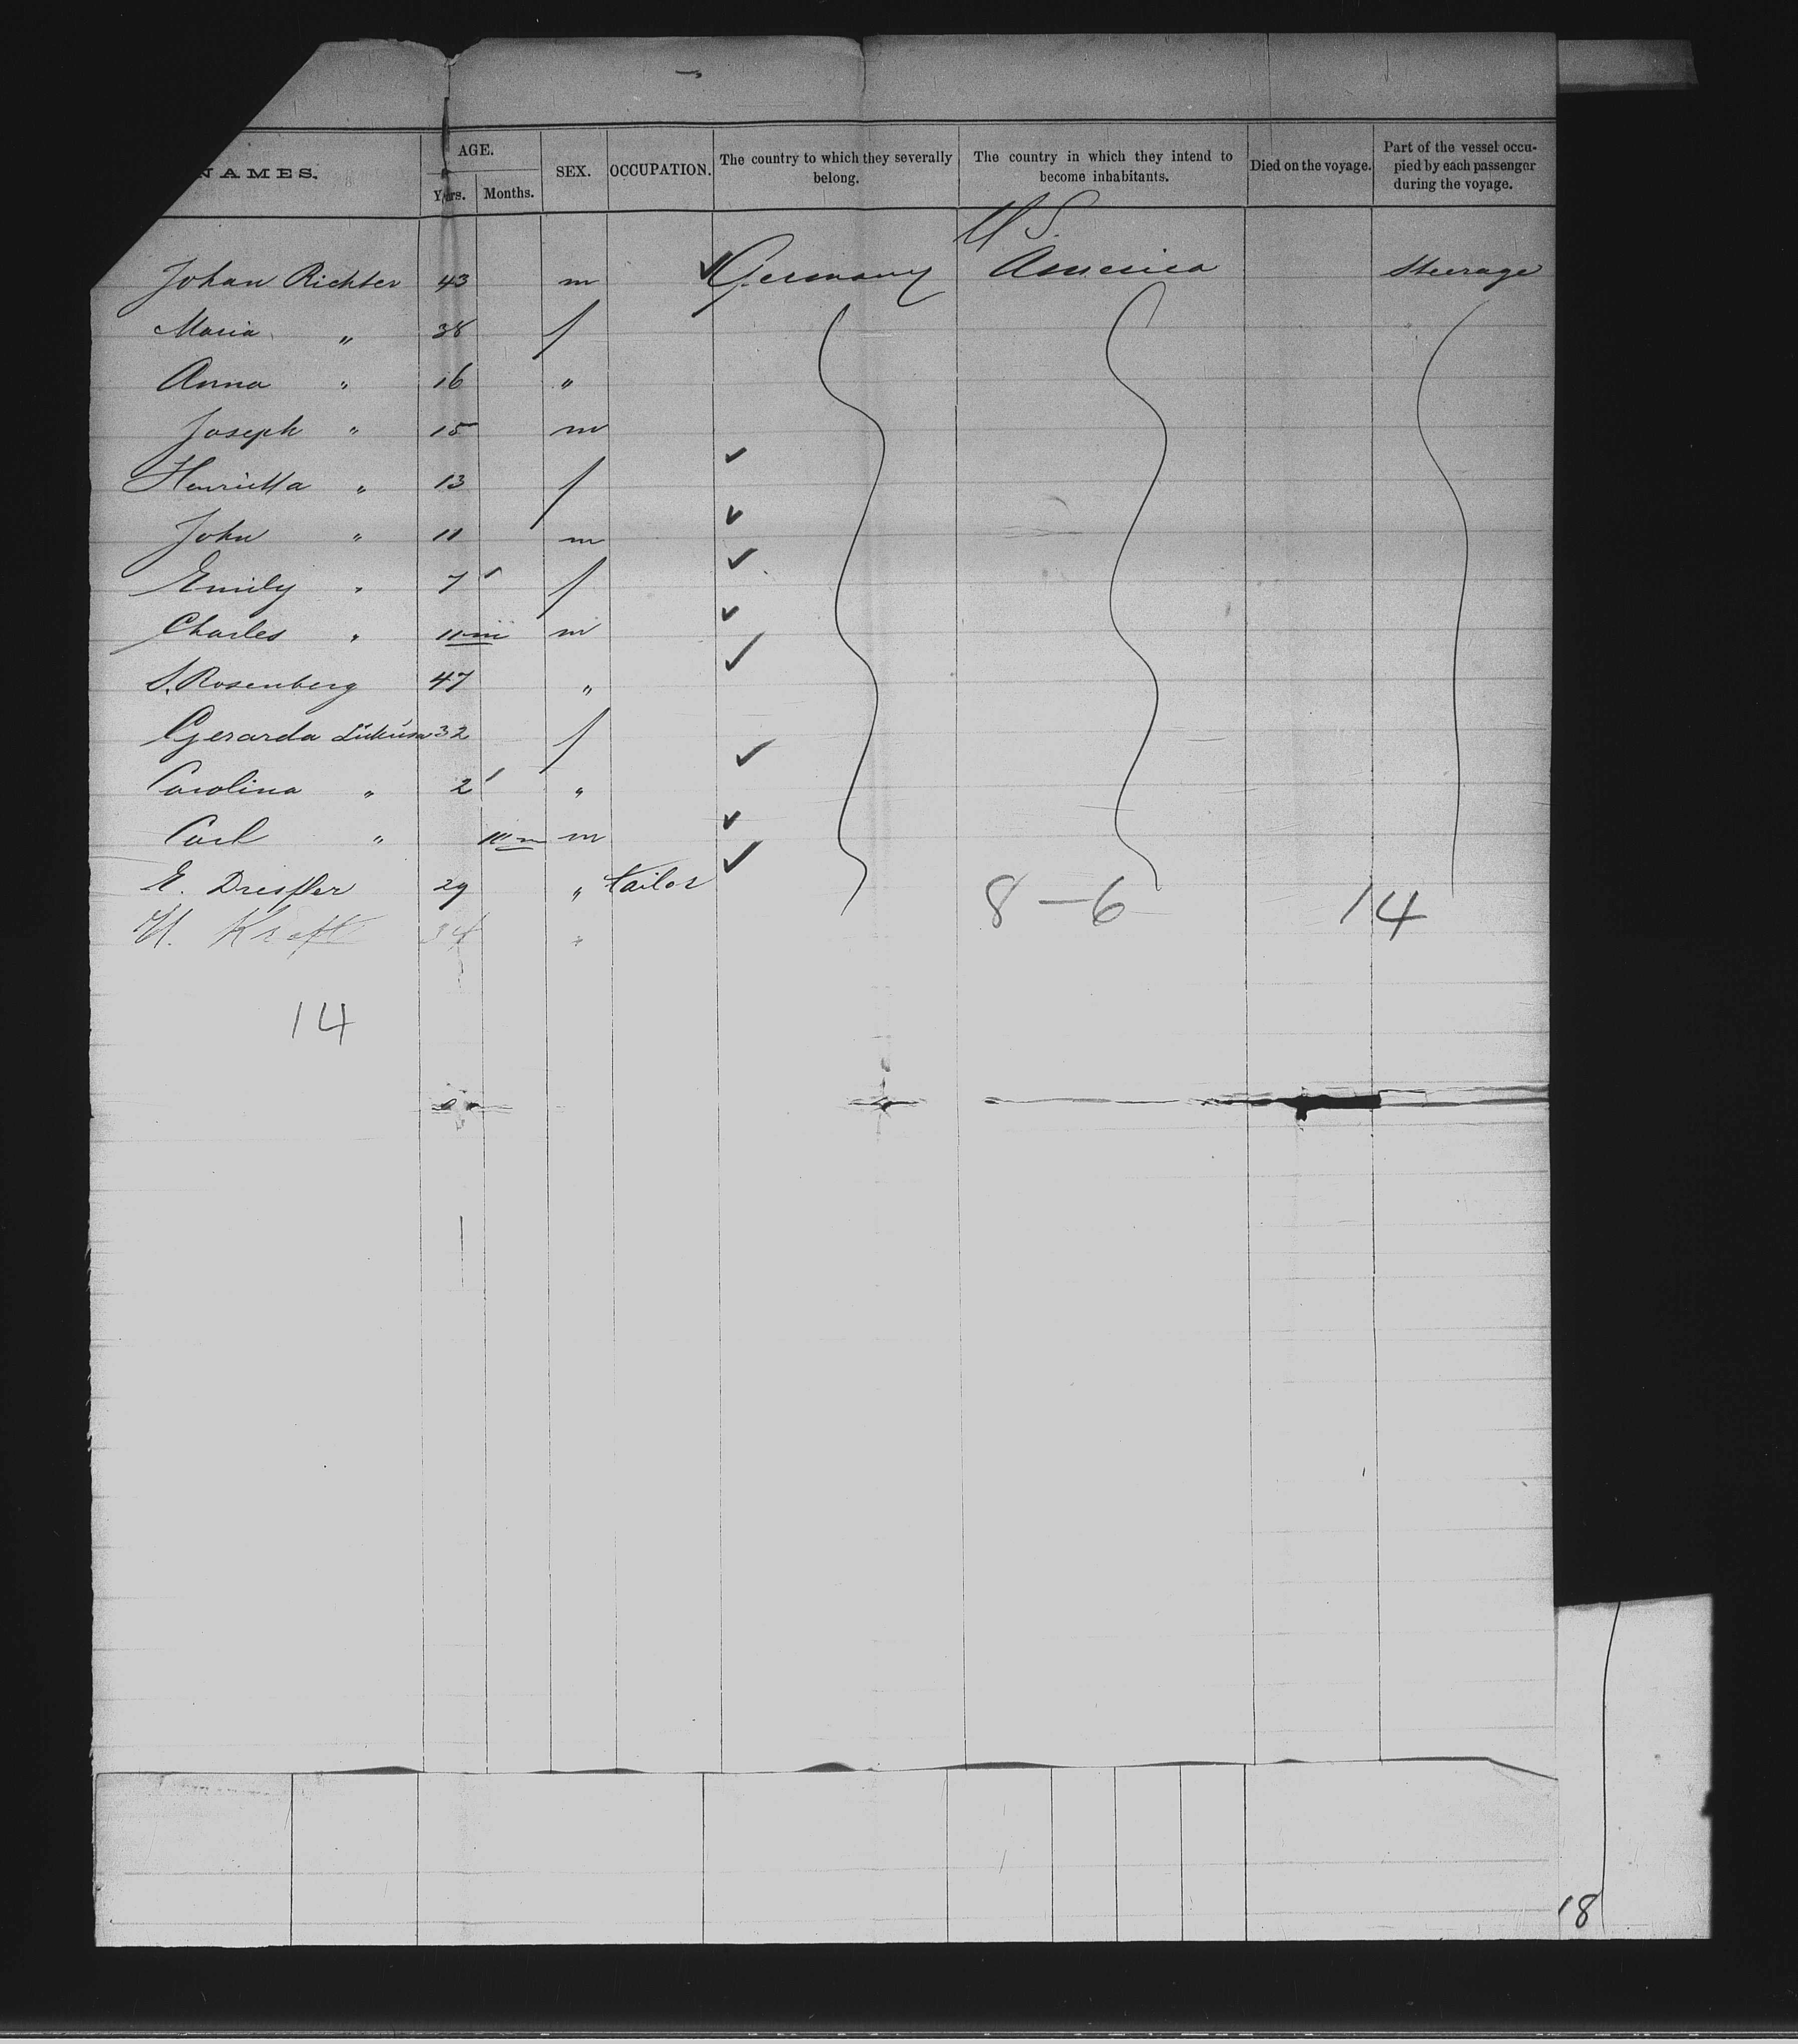 NAMES. AGE. Years. Months. SEX. OCCUPATION. The country to which they severally belong. The country in which they intend to become inhabitants. Died on the voyage. Part of the vessel occupied by each passenger during the voyage.
U S.
Johan Richter 43 m Germany America Steerage
Maria " 38 f
Anna " 16 "
Joseph " 15 m
Henrietta " 13 f
John " 11 m
Emily " 7 f
Charles " 11 m m
S. Rosenberg 47 "
Gerarda 32 f
Carolina " 2 "
Carl " m m
E. Dressler 29 " tailor
8 - 6 14
H. Kraft 34 "
14
18